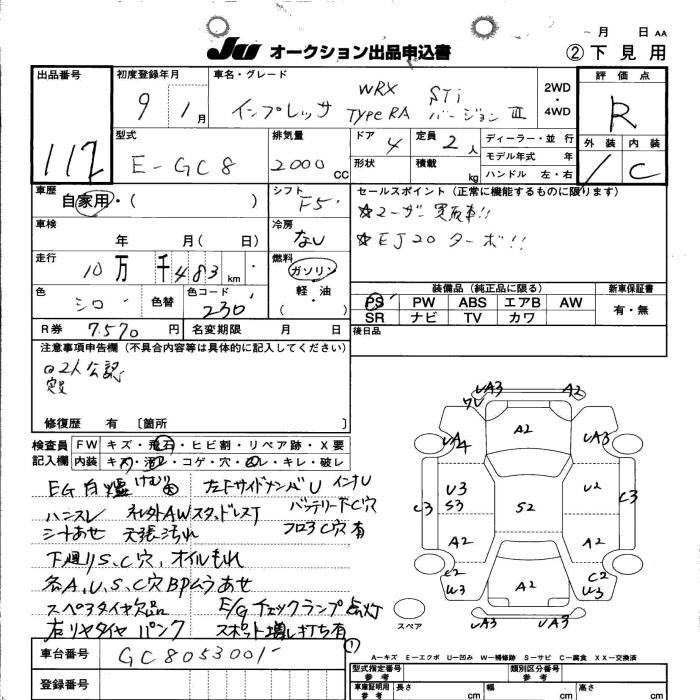 月 日 AA
JU オークション出品申込書 ②下見用
出品番号 初度登録年月 車名・グレード 評価点
112 9 1月 インプレッサ WRX STi TypeRA バージョンⅢ 2WD・4WD R
型式 排気量 ドア 定員 ディーラー・並行 外装 内装
E-GC8 2000cc 4 2人 モデル年式 年 / C
形状 積載 kg ハンドル 左・右
車歴 自家用・( ) シフト F5
セールスポイント(正常に機能するものに限ります)
☆ユーザー買取車!!
☆EJ20ターボ!!
車検 年 月( 日) 冷房 なし
走行 10万 千483km 燃料 ガソリン 軽・油
色 シロ 色替 色コード 230
装備品(純正品に限る) 新車保証書
PS PW ABS エアB AW 有・無
SR ナビ TV カワ
R券 7.570円 名変期限 月 日 後日品
注意事項申告欄(不具合内容等は具体的に記入してください)
2人公認
定員
修復歴 有 〔箇所
検査員 FW キズ・飛石・ヒビ割・リペア跡・X要
記入欄 内装 キズ・汚レ・コゲ・穴・ヨレ・キレ・破レ
EG白煙 けむり大 左Fサイドメンバ U インナU
ハンスレ 社外AWスタッドレス バッテリー下C穴
シートあせ 天張汚れ フロアC穴有
下廻りS、C穴、オイルもれ
各A、U、S、C穴BPムラあせ
スペアタイヤ欠品 E/Gチェックランプ点灯
右リヤタイヤパンク スポット増し打ち有
①
UA3 A2
ワレ
A2
UA4 UA3
U3 S3 U2
C3 S2 C3
A2 A2
C2 W3 A2 C2 U3
UA3 UA3
スペア
A-キズ E-エクボ U-凹み W-補修跡 S-サビ C-腐食 XX-交換済
車台番号 GC8053001
型式指定番号 参考 類別区分番号 参考
登録番号
車庫証明用 参考 長さ cm 幅 cm 高さ cm